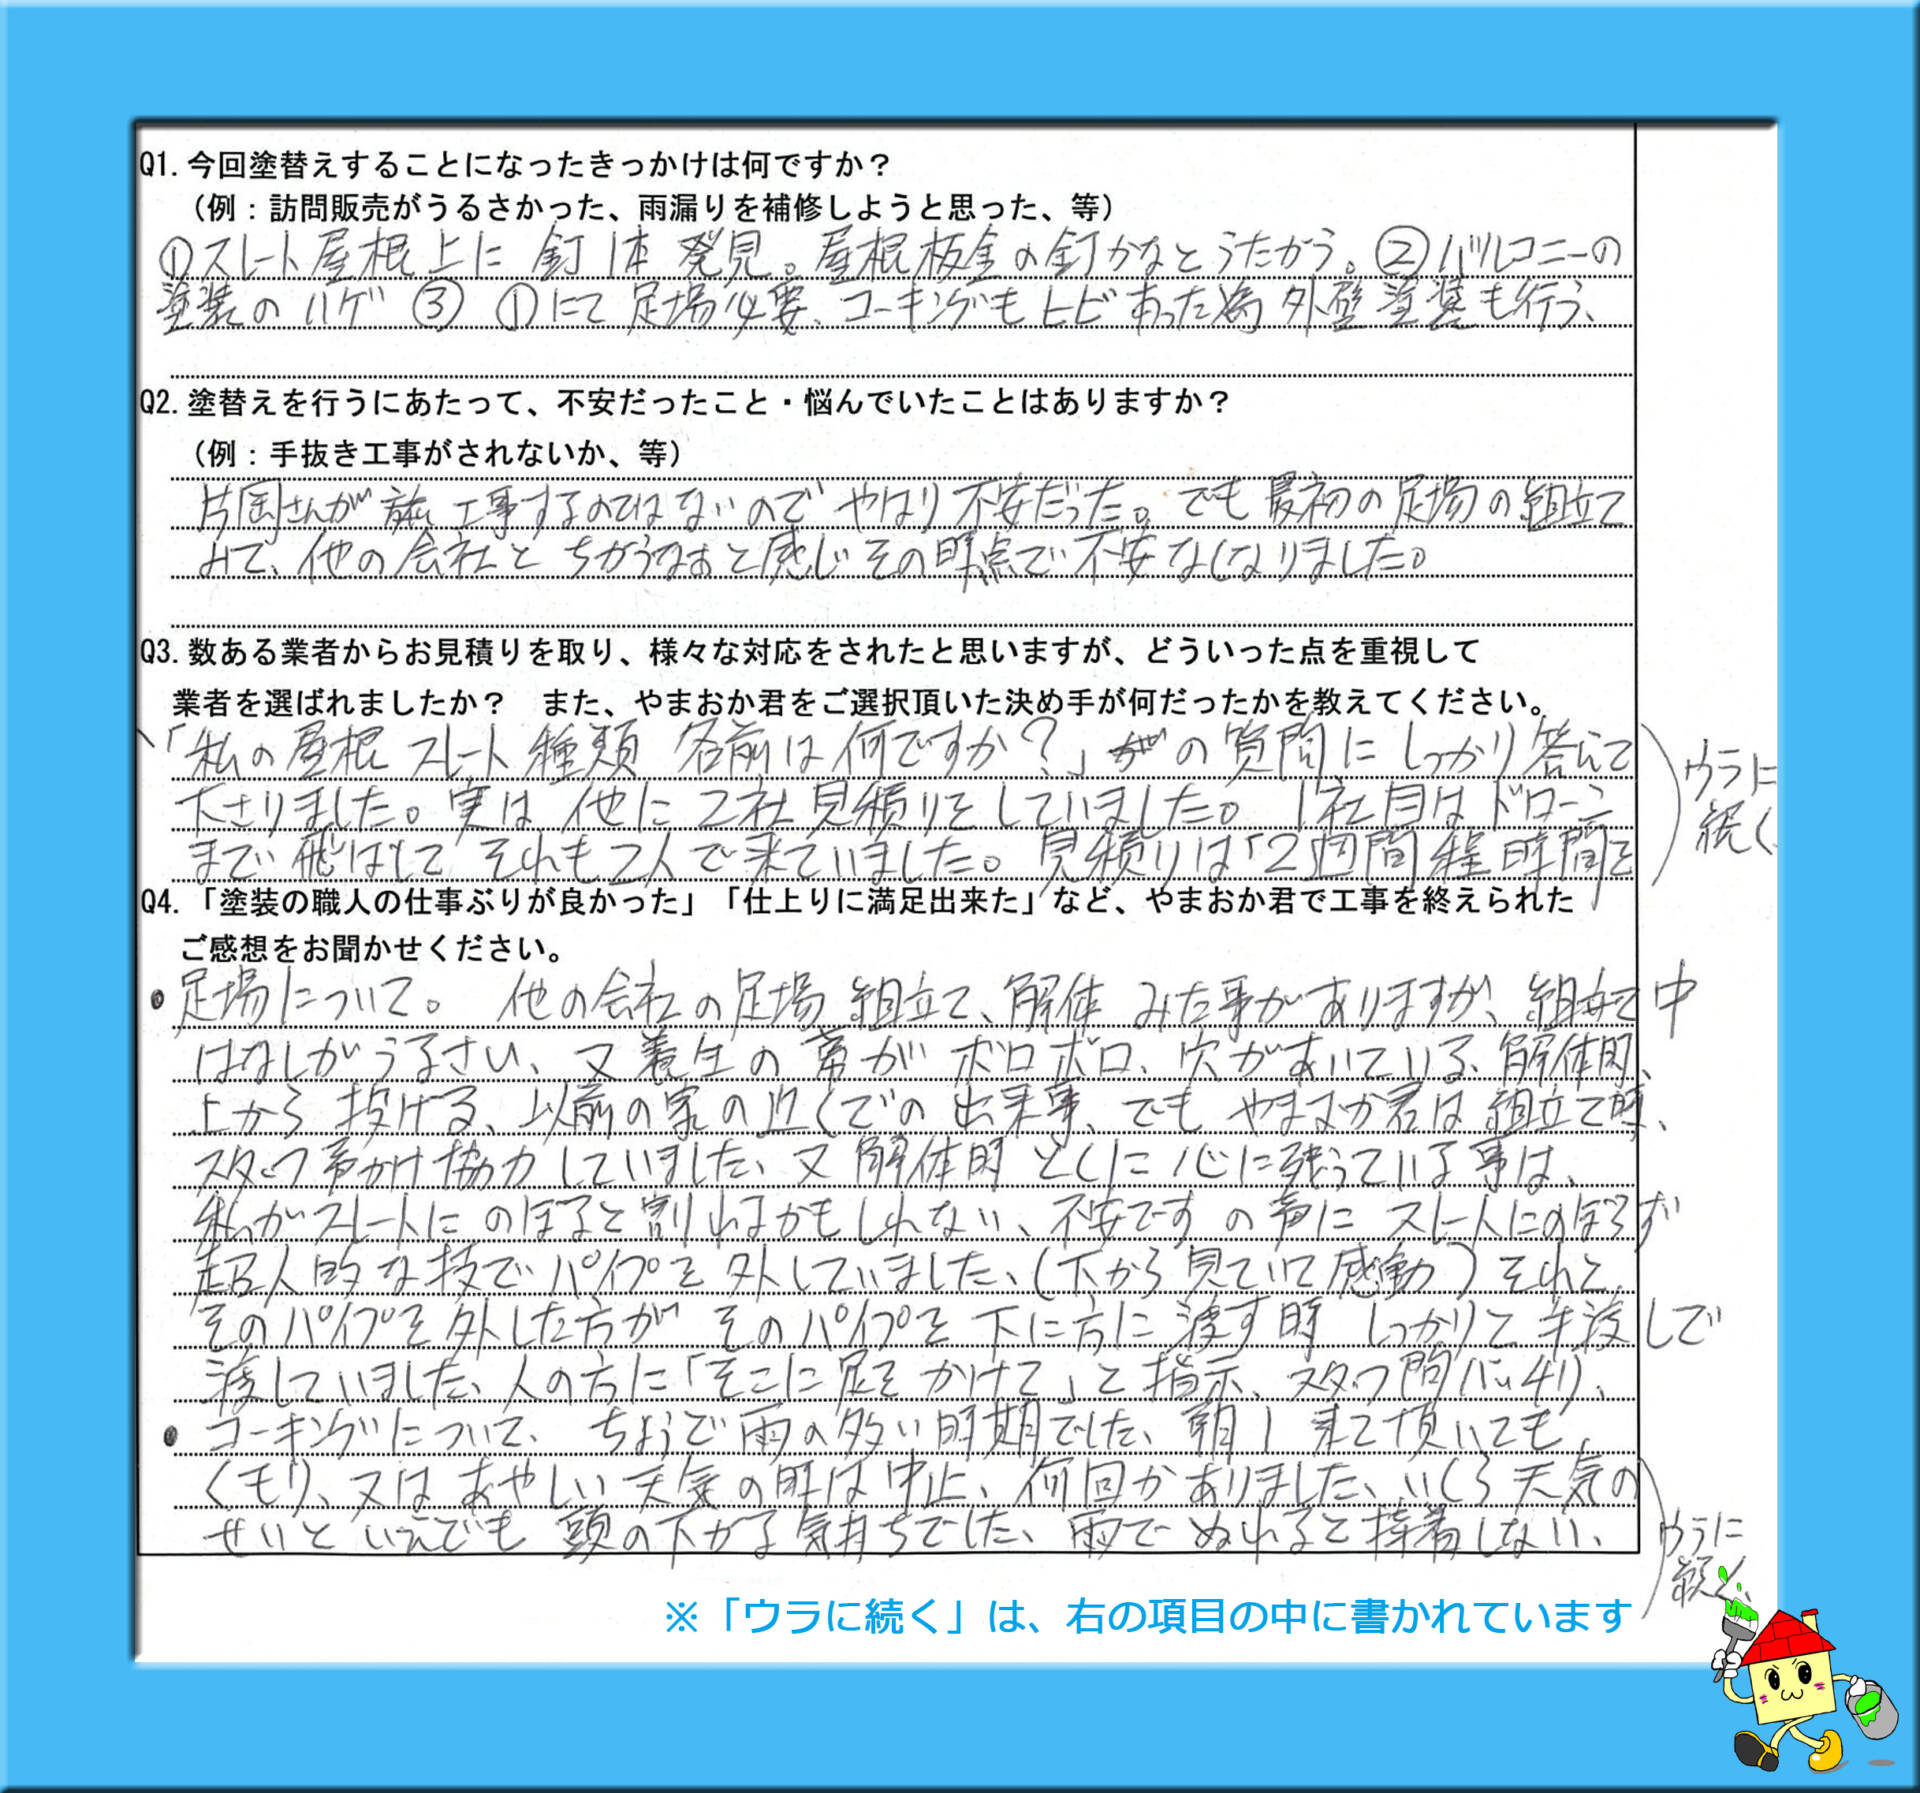 Q1.今回塗替えすることになったきっかけは何ですか？
（例：訪問販売がうるさかった、雨漏りを補修しようと思った、等）
①スレート屋根上に 釘1本 発見。屋根板金の釘かなとうたがう。②バルコニーの
塗装のハゲ ③ ①にて 足場必要、コーキングもヒビあった為 外壁塗装も行う、
Q2.塗替えを行うにあたって、不安だったこと・悩んでいたことはありますか？
（例：手抜き工事がされないか、等）
片岡さんが 施工事するのではないので やはり 不安だった。でも 最初の足場の組立て
みて、他の会社と ちがうなぁと感じ その時点で 不安なくなりました。
Q3.数ある業者からお見積りを取り、様々な対応をされたと思いますが、どういった点を重視して
業者を選ばれましたか？ また、やまおか君をご選択頂いた決め手が何だったかを教えてください。
「私の屋根 スレート 種類 名前は何ですか？」の質問に しっかり答えて
下さりました。実は 他に 2社見積りをしていました。1社目はドローン
まで 飛ばして それも2人で来ていました。見積りは「2週間程時間を
ウラに
続く
Q4.「塗装の職人の仕事ぶりが良かった」「仕上りに満足出来た」など、やまおか君で工事を終えられた
ご感想をお聞かせください。
●足場について。 他の会社の足場 組立て、解体 みた事がありますが、組立て中
はなしがうるさい、又養生の幕が ボロボロ、穴があいている、解体時、
上から 投げる、以前の家の近くでの 出来事、でも やまおか君は 組立て時、
スタッフ声かけ協力していました、又 解体時 とくに心に残っている事は、
私がスレートに のぼると割れるかもしれない、不安です の声に スレートにのぼらず
超人的な技で パイプを外していました、（下から見ていて感動）それと
そのパイプを外した方が そのパイプを 下に方に 渡す時 しっかりと手渡しで
渡していました、人の方に「そこに足を かけて」と指示、スタッフ間バッチリ、
●コーキングについて、 ちょうど雨の多い時期でした、朝1 来て頂いても
くもり、又は あやしい天気の時は中止、何回かありました、いくら天気の
せいと いえども 頭の下がる気持ちでした、雨で ぬれると接着しない、
ウラに
続く
※「ウラに続く」は、右の項目の中に書かれています